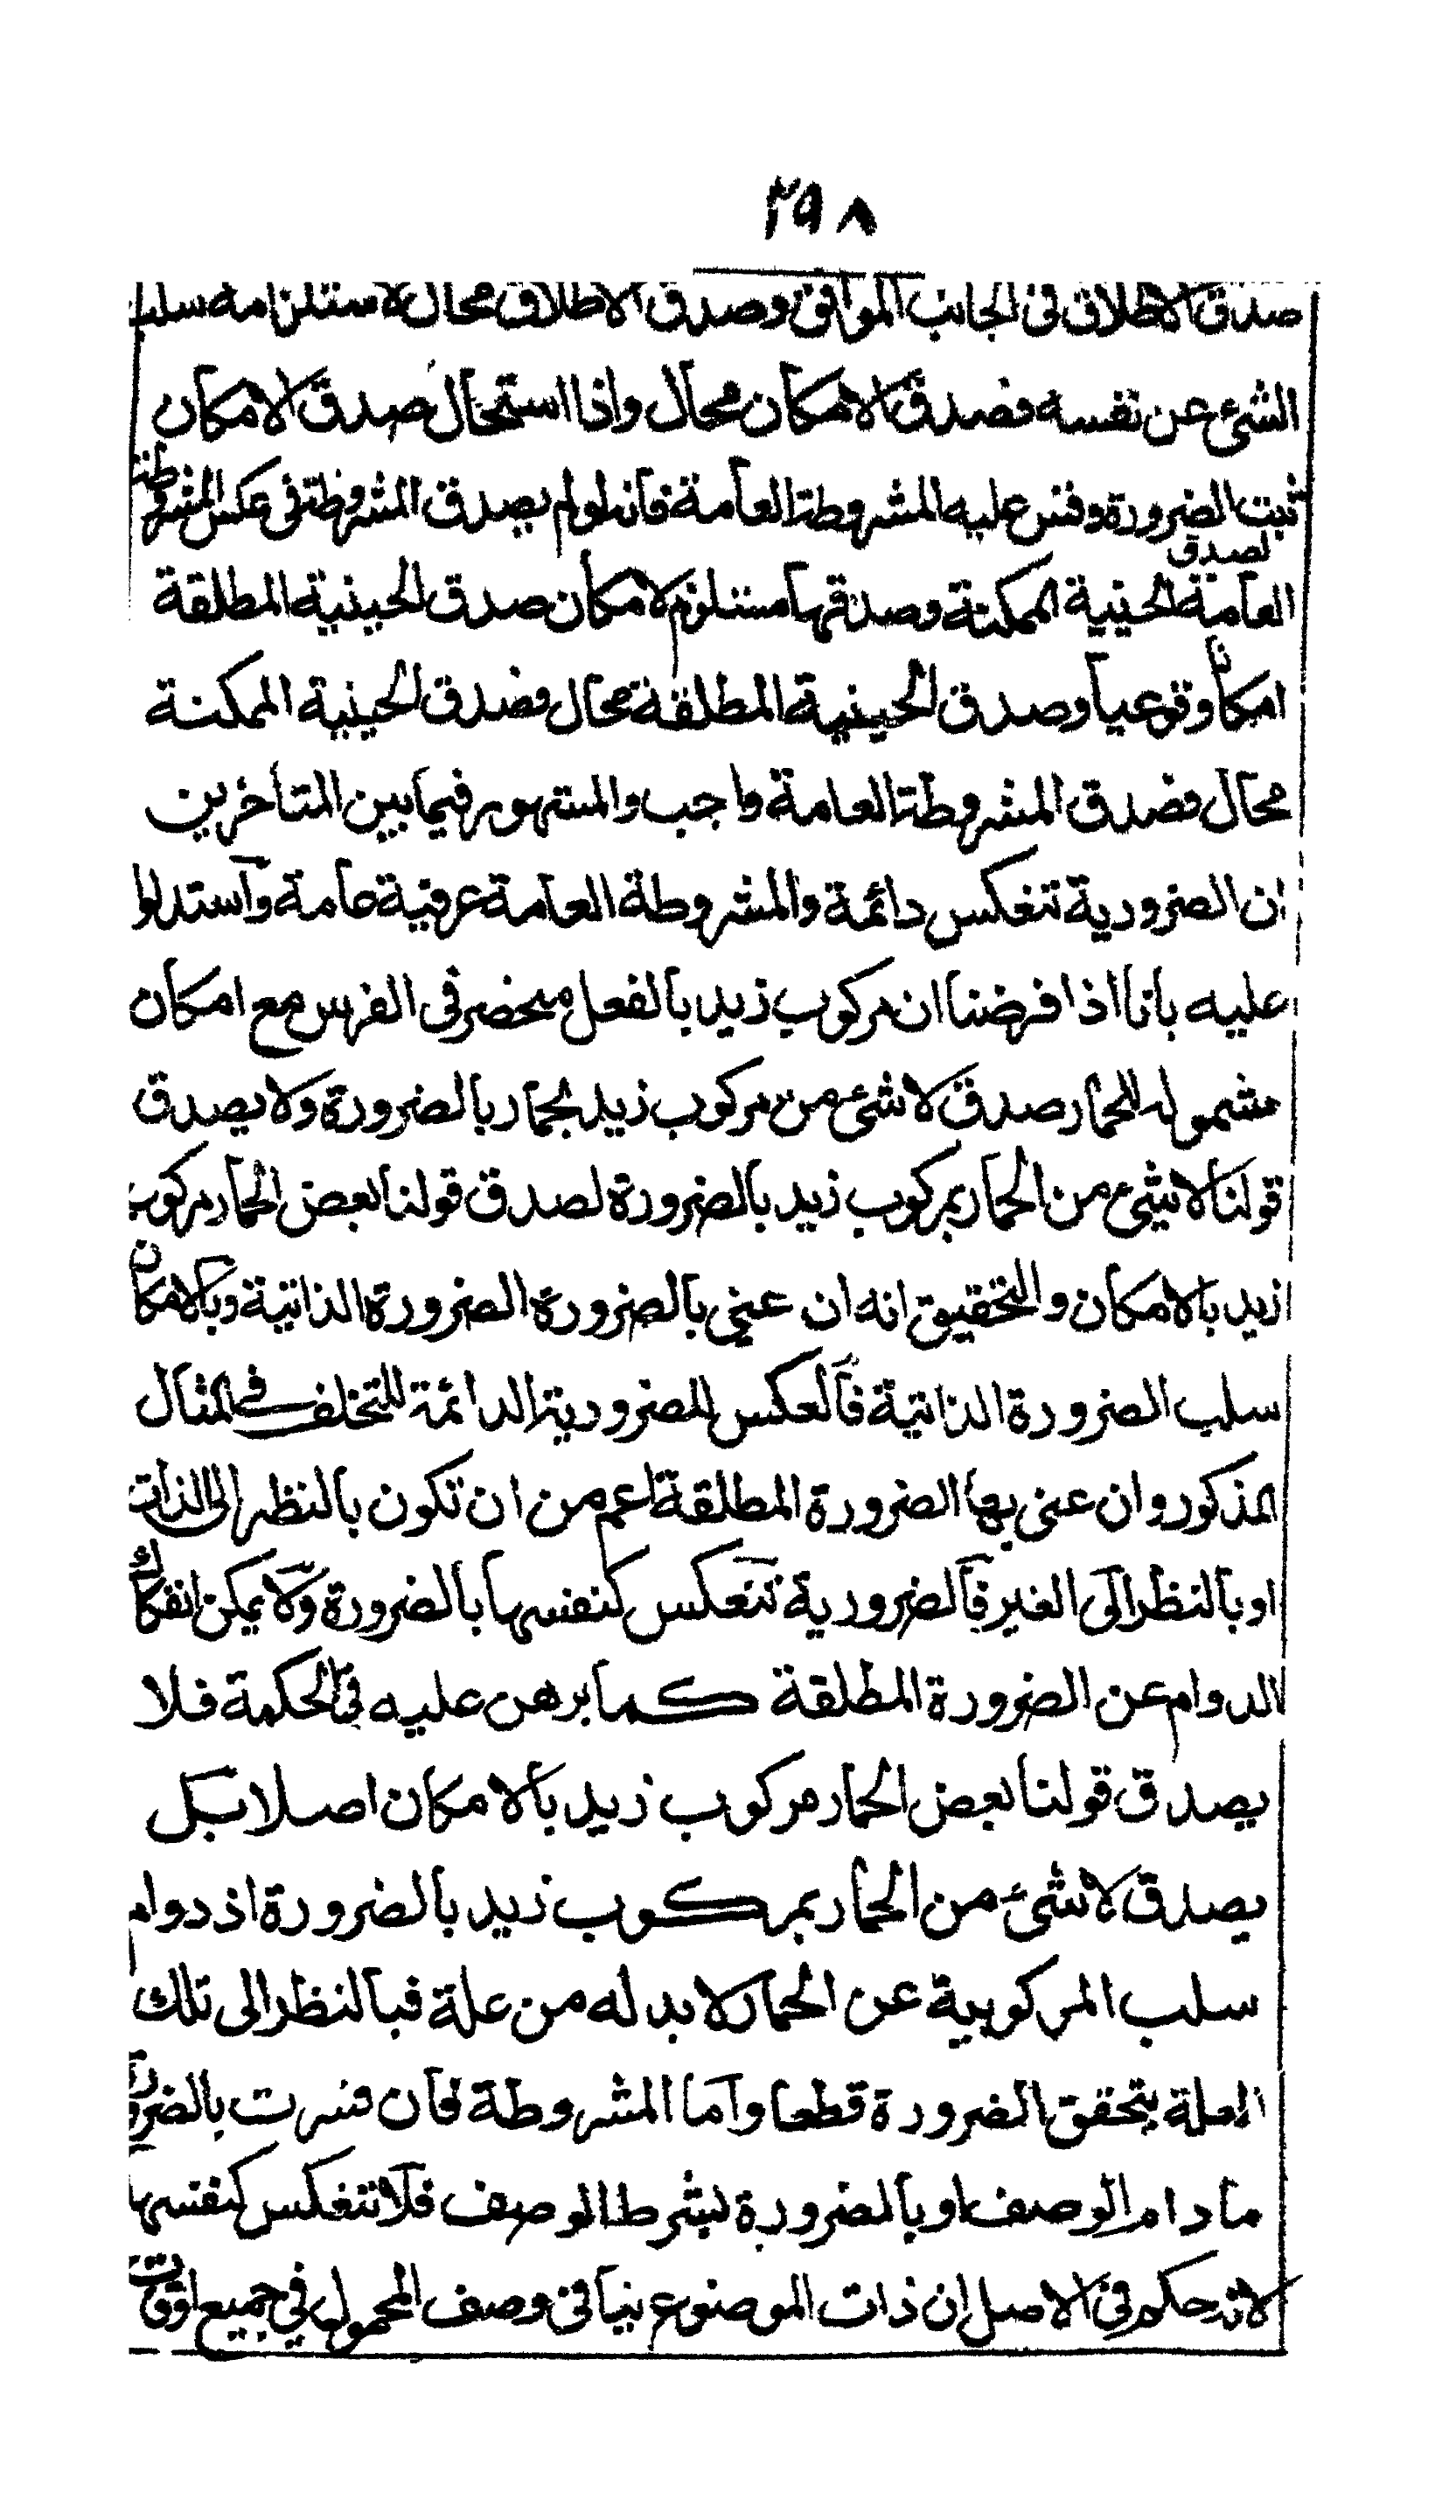 ٢٩٨
صدق الاطلاق فى الجانب الموافق وصدق الاطلاق محال لاستلزامه سلب
الشئ عن نفسه فصدق الامكان محال واذا استحال صدق الامكان
ثبت الضرورة وقس عليه المشروطة العامة فانه لو لم يصدق المشروطة فى عكس المشروطة
العامة لصدق الحينية الممكنة وصدقها مستلزم لامكان صدق الحينية المطلقة
امكانا وقوعيا وصدق الحينية المطلقة محال فصدق الحينية الممكنة
محال فصدق المشروطة العامة واجب والمشهور فيما بين المتاخرين
ان الضرورية تنعكس دائمة والمشروطة العامة عرفية عامة واستدلوا
عليه بانا اذا فرضنا ان مركوب زيد بالفعل منحصر فى الفرس مع امكان
شموله للحمار صدق لا شئ من مركوب زيد بحمار بالضرورة ولا يصدق
قولنا لا شئ من الحمار بمركوب زيد بالضرورة لصدق قولنا بعض الحمار مركوب
زيد بالامكان والتحقيق انه ان عنى بالضرورة الضرورة الذاتية وبالامكان
سلب الضرورة الذاتية فالعكس للضرورية الدائمة للتخلف فى المثال
المذكور وان عنى بها الضرورة المطلقة اعم من ان تكون بالنظر الى الذات
او بالنظر الى الغير فالضرورية تنعكس كنفسها بالضرورة ولا يمكن انفكاك
الدوام عن الضرورة المطلقة كما برهن عليه فى الحكمة فلا
يصدق قولنا بعض الحمار مركوب زيد بالامكان اصلا بل
يصدق لا شئ من الحمار بمركوب زيد بالضرورة اذ دوام
سلب المركوبية عن الحمار لا بد له من علة فبالنظر الى تلك
العلة يتحقق الضرورة قطعا واما المشروطة فان فسرت بالضرورة
ما دام الوصف او بالضرورة لبشرط الوصف فلا تنعكس كنفسها
لانه حكم فى الاصل ان ذات الموضوع ينافى وصف المحمول فى جميع اوقات